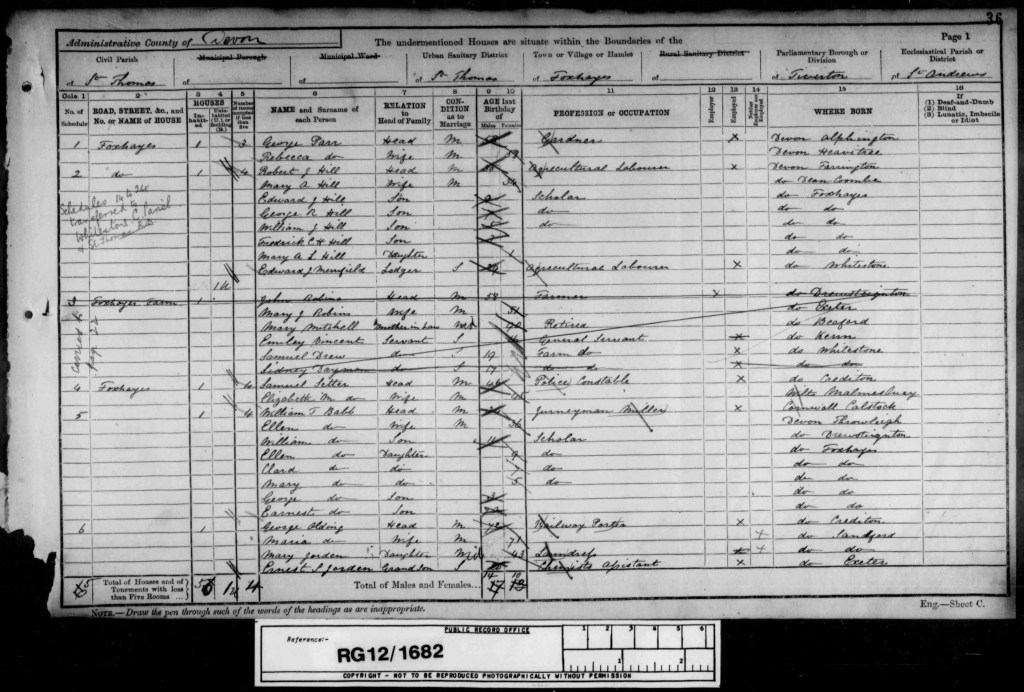 36
Page 1
Administrative County of Devon
The undermentioned Houses are situate within the Boundaries of the
Civil Parish
Municipal Borough
Municipal Ward
Urban Sanitary District
Town or Village or Hamlet
Rural Sanitary District
Parliamentary Borough or Division
Ecclesiastical Parish or District
of St Thomas of of of St Thomas of Foxhayes of of Tiverton of St Andrews
Cols. 1 2 3 4 5 6 7 8 9 10 11 12 13 14 15 16
No. of Schedule
ROAD, STREET, &c., and No. or NAME of HOUSE
HOUSES
Inhabited
NAME and Surname of each Person
RELATION to Head of Family
CONDITION as to Marriage
AGE last Birthday of
Males Females
PROFESSION or OCCUPATION
Employer
Employed
WHERE BORN
If
(1) Deaf-and-Dumb
(2) Blind
(3) Lunatic, Imbecile or Idiot
1 Foxhayes 1 3 George Parr Head M Gardner X Devon Alphington
Rebecca do Wife M Devon Heavitree
2 do 1 4 Robert J Hill Head M Agricultural Labourer X Devon Farrington
Mary A. Hill Wife M do Dean Coombe
Edward J Hill Son Scholar do Foxhayes
George R Hill Son do do do
William J Hill Son do do do
Fredrick C H Hill Son do do
Mary A L Hill Daughter 1 do do
Edward J Merrifield Lodger S Agricultural Labourer X do Whitestone
Schedules 14 to 26
transferred to
Whitestone C. Parish
1u
3 Foxhayes Farm 1 John Robins Head M 58 Farmer X do Drewsteignton
Mary J Robins Wife M do Exeter
Mary Mitchell Mother in Law Wid Retired do Beaford
Emiley Vincent Servant S General Servant X do Kenn
Samuel Drew do S 19 Farm do X do Whitestone
Sidney Dayman do S 17 do do X do do
page 22
4 Foxhayes 1 4 Samuel Setter Head M Police Constable X do Crediton
Elizabeth M do Wife M Wilts Malmesbury
5 1 4 William T Babb Head M Jurneyman Miller X Cornwall Calstock
Ellen do Wife M 36 Devon Throwleigh
William do Son Scholar do Drewsteignton
Ellen do Daughter 9 do do Foxhayes
Clara do do 7 do do do
Mary do do 5 do do do
George do Son do do
Earnest do Son do do
6 1 George Olding Head M 72 Railway Porter X do Crediton
Maria do Wife M 71 X do Sandford
Mary Jorden Daughter Wid 43 Laundress X do do
Ernest S Jorden Grandson S Chemists Assistant X do Exeter
5 Total of Houses and of Tenements with less than Five Rooms ... 5 1u 4 Total of Males and Females... 14 10
17 13
NOTE.—Draw the pen through such of the words of the headings as are inappropriate.
Eng.—Sheet C.
PUBLIC RECORD OFFICE
Reference:-
RG12/1682
1 2 3 4 5 6
1 2
COPYRIGHT - NOT TO BE REPRODUCED PHOTOGRAPHICALLY WITHOUT PERMISSION